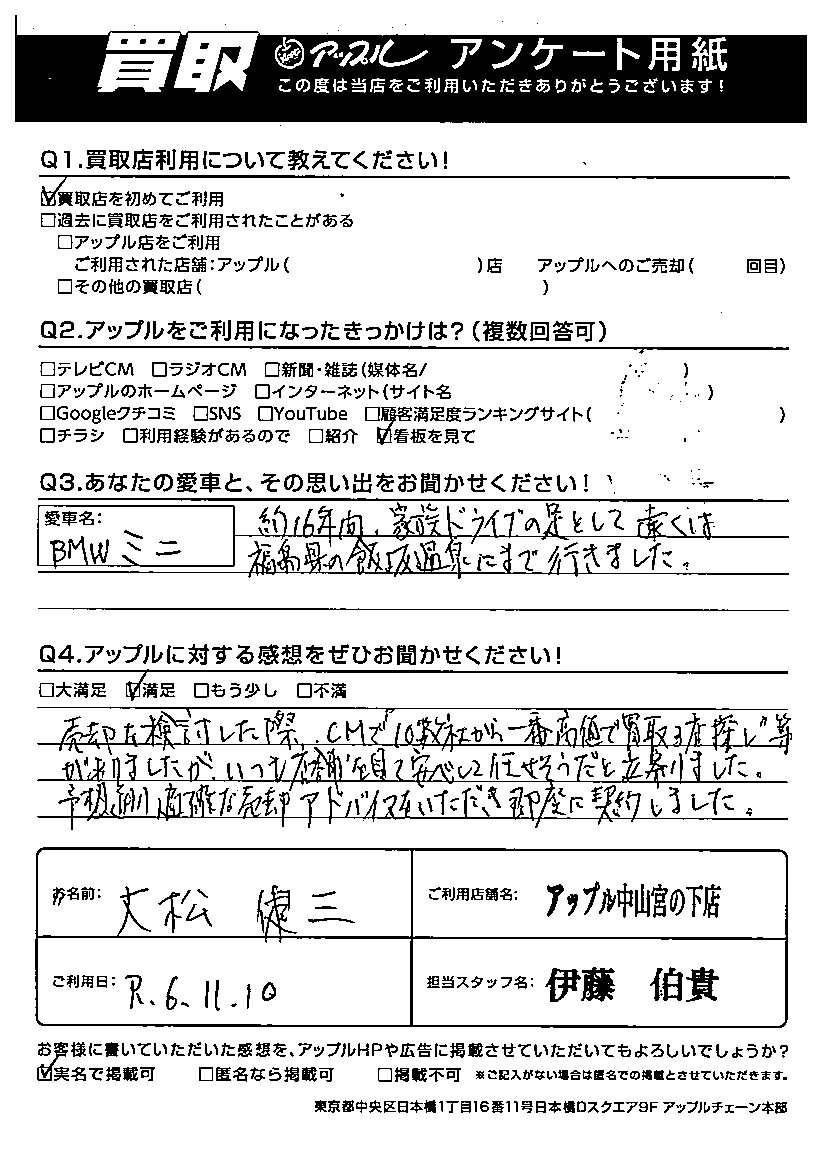 買取 アップル アンケート用紙
この度は当店をご利用いただきありがとうございます!
Q1.買取店利用について教えてください!
☑買取店を初めてご利用
□過去に買取店をご利用されたことがある
□アップル店をご利用
ご利用された店舗:アップル( )店 アップルへのご売却( 回目)
□その他の買取店( )
Q2.アップルをご利用になったきっかけは?(複数回答可)
□テレビCM □ラジオCM □新聞・雑誌(媒体名/ )
□アップルのホームページ □インターネット(サイト名 )
□Googleクチコミ □SNS □YouTube □顧客満足度ランキングサイト( )
□チラシ □利用経験があるので □紹介 ☑看板を見て
Q3.あなたの愛車と、その思い出をお聞かせください!
愛車名:
BMW ミニ
約16年間、家族ドライブの足として遠くは
福島県の飯坂温泉にまで行きました。
Q4.アップルに対する感想をぜひお聞かせください!
□大満足 ☑満足 □もう少し □不満
売却を検討した際、CMで10数社から一番高値で買取る店探し等
がありましたが、いつも店舗を見て安心して任せそうだと立寄りました。
予想通り適確な売却アドバイスをいただき即座に契約しました。
お名前: 大松 健三
ご利用店舗名: アップル中山宮の下店
ご利用日: R.6.11.10
担当スタッフ名: 伊藤 伯貴
お客様に書いていただいた感想を、アップルHPや広告に掲載させていただいてもよろしいでしょうか?
☑実名で掲載可 □匿名なら掲載可 □掲載不可 ※ご記入がない場合は匿名での掲載とさせていただきます。
東京都中央区日本橋1丁目16番11号日本橋Dスクエア9F アップルチェーン本部